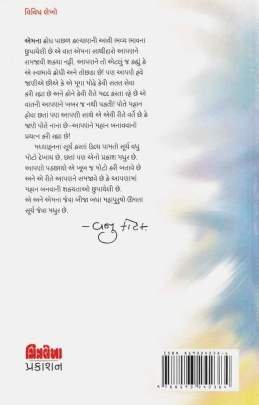 વિવિધ લેખો
એમના ક્રોધ પાછળ કલ્યાણની આવી ભવ્ય ભાવના
છુપાયેલી છે એ વાત એમના સાથીદારો આપણને
સમજાવી શક્યા નહીં. આપણને તો એટલું જ કહ્યું કે
એ સ્વભાવે ક્રોધી અને તીછડા છે! પણ આપણે હવે
જાણીએ છીએ કે એ મૂંગા મોઢે કેવી સતત સેવા
કરી રહ્યા છે અને કોને કેવી રીતે મદદ કરતા રહે છે એ
વાતની આપણને ખબર જ નથી પડતી! પોતે મહાન
હોવા છતાં પણ આપણી સાથે એ એવી રીતે વર્તે છે કે
જાણે પોતે નાના છે–આપણને મહાન બનાવવાનો
પ્રયત્ન કરી રહ્યા છે!
મધ્યાહ્નના સૂર્ય કરતાં ઉદય પામતી સૂર્ય વધુ
મોટો દેખાય છે, છતાં પણ એનો પ્રકાશ મધુર છે.
આપણો પડછાયો એ ખૂબ જ મોટો કરી બતાવે છે
અને એ રીતે આપણને સમજાવે છે કે આપણામાં
મહાન બનવાની શક્યતાઓ છુપાયેલી છે.
એ અને એમના જેવા બીજા બધા મહાપુરુષો ઊગતા
સૂર્ય જેવા મધુર છે.
–વજુ કોટક
ચિત્રલેખા
પ્રકાશન